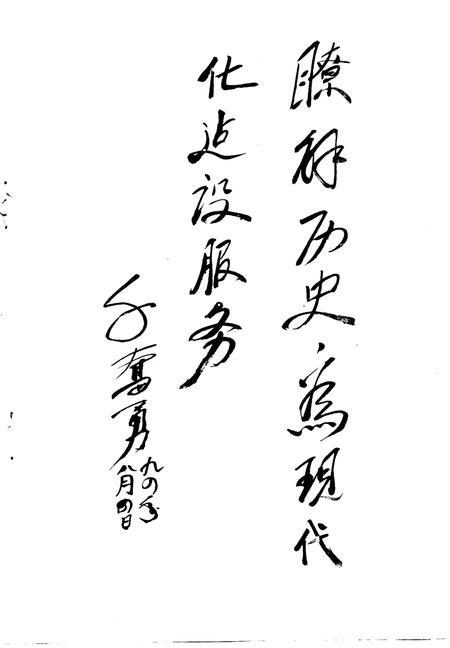 瞭解历史，為现代
化建设服务
千奮勇
九四年
八月四日